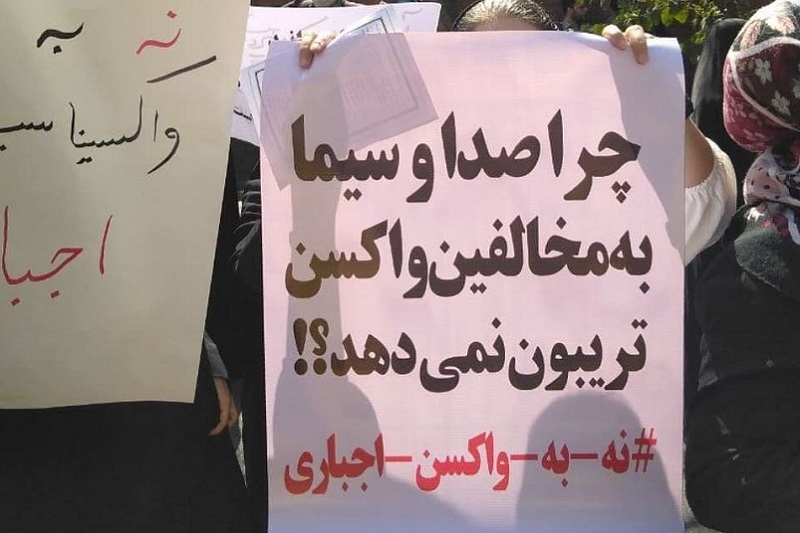 چرا صدا و سیما
به مخالفین واکسن
تریبون نمی دهد؟!
#نه-به-واکسن-اجباری
نه به
واکسیناسی
اجبا